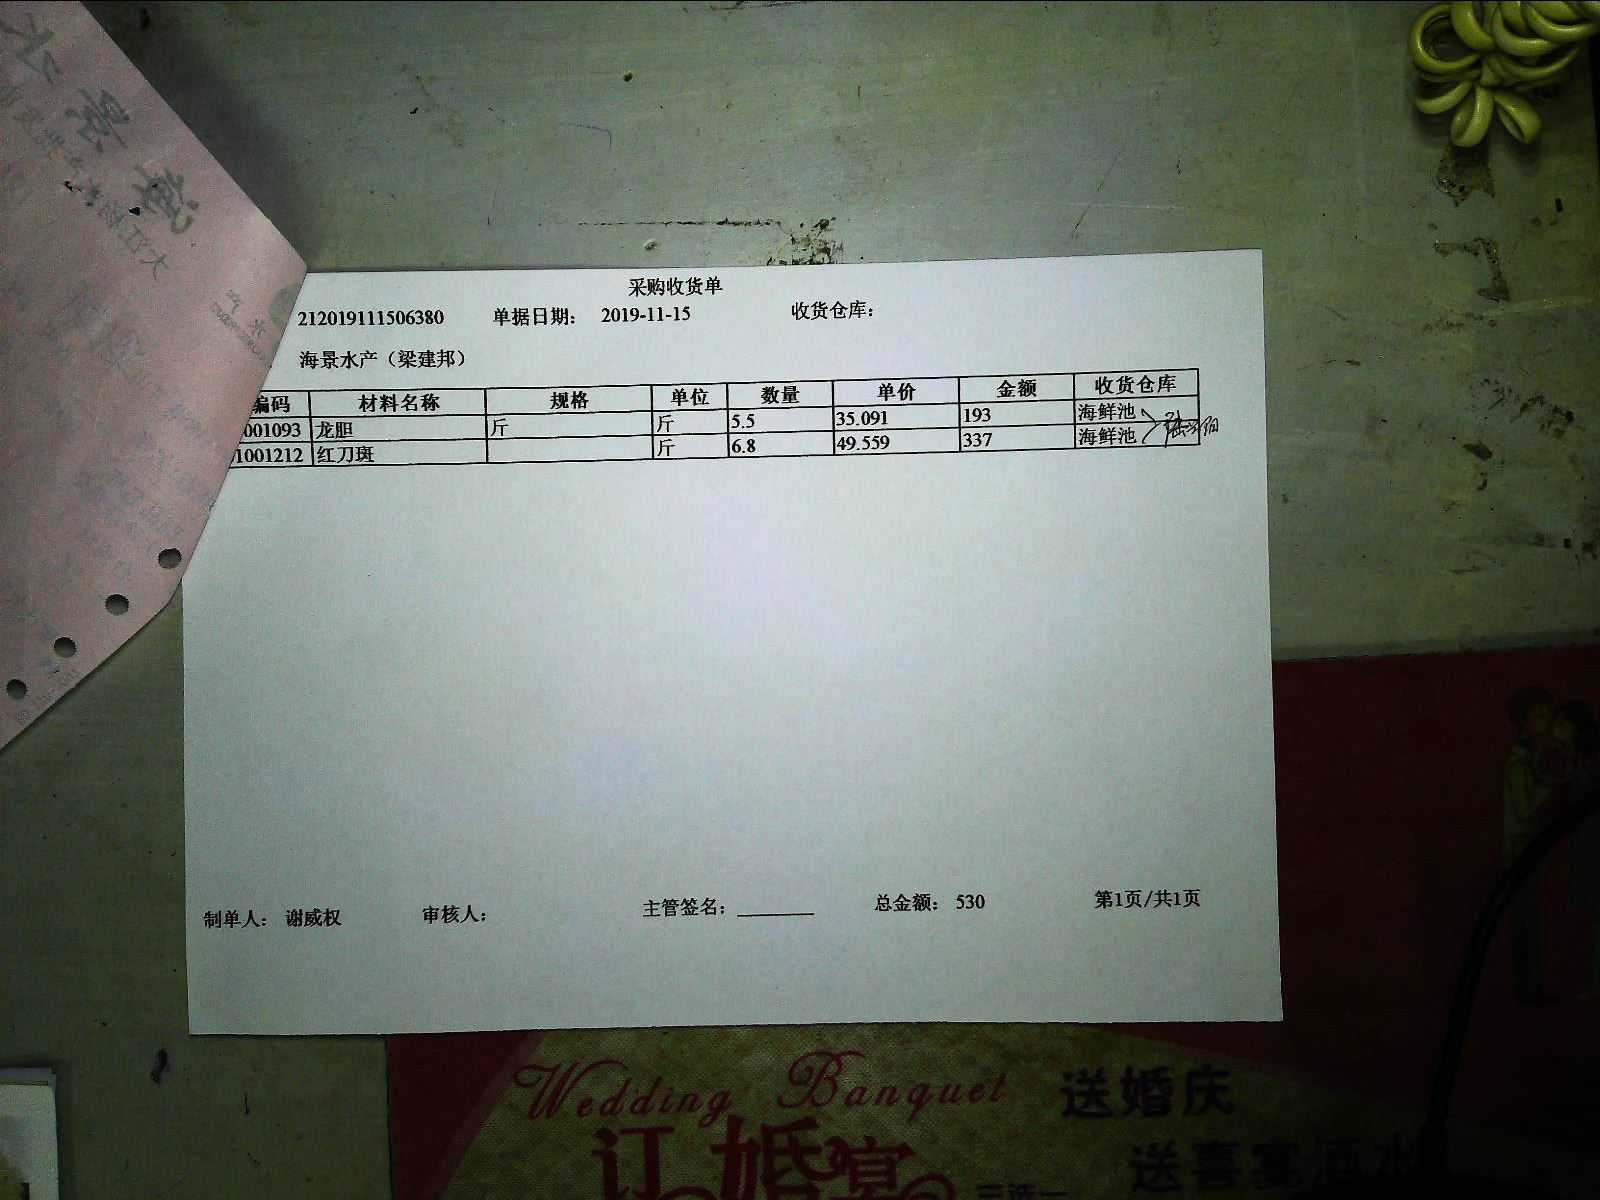 采购收货单
212019111506380 单据日期： 2019-11-15 收货仓库：
海景水产（梁建邦）
编码 材料名称 规格 单位 数量 单价 金额 收货仓库
001093 龙胆 斤 斤 5.5 35.091 193 海鲜池
1001212 红刀斑 斤 6.8 49.559 337 海鲜池
制单人： 谢威权 审核人： 主管签名：________ 总金额： 530 第1页/共1页
Wedding Banquet 送婚庆
订婚宴 送喜宴酒水